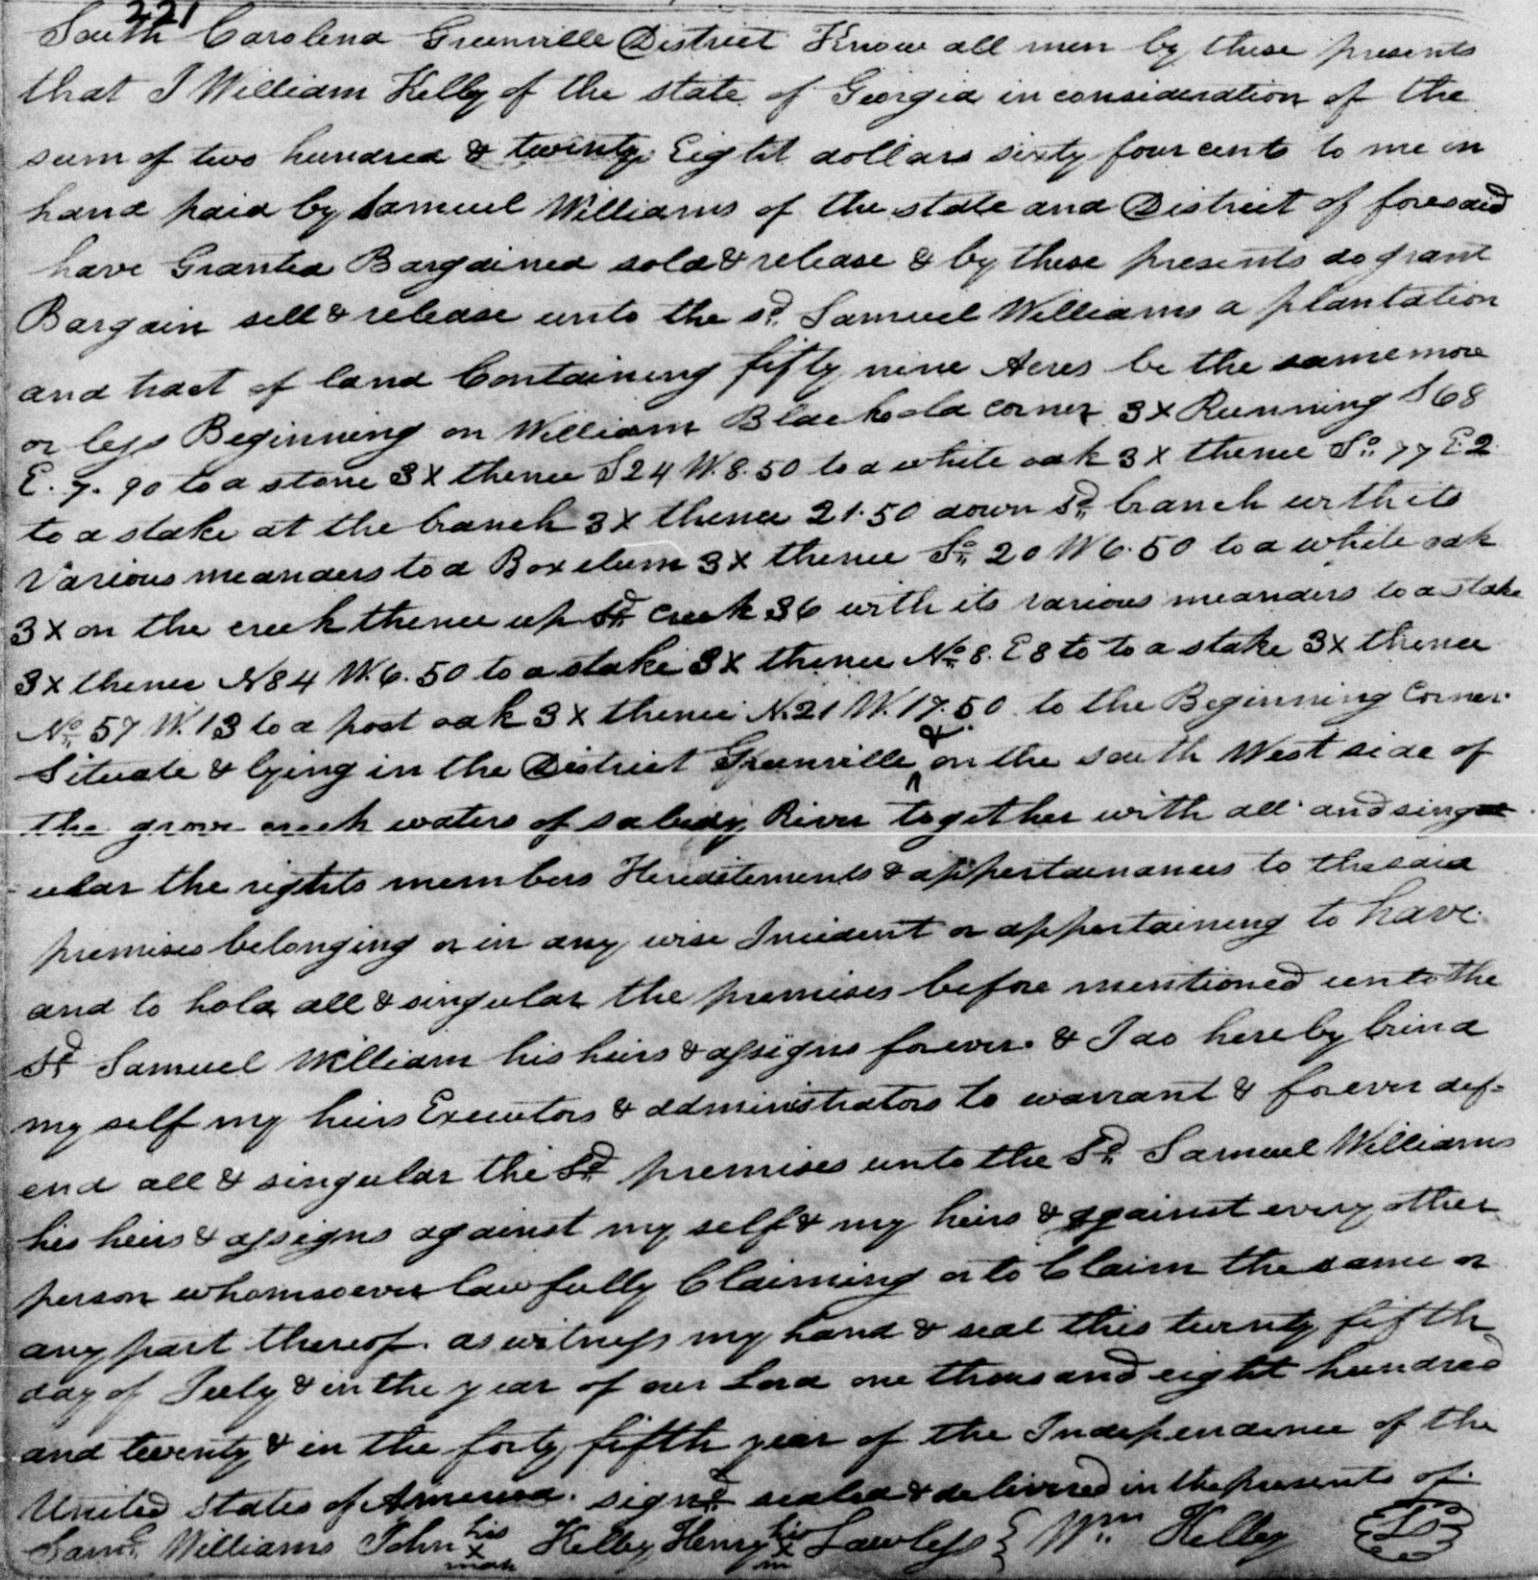 221
South Carolina Greenville District Know all men by these presents
that I William Kelly of the state of Georgia in consideration of the
sum of two hundred & twenty Eight dollars sixty four cents to me in
hand paid by Samuel Williams of the state and District of foresaid
have Granted Bargained sold & release & by these presents do grant
Bargain sell & release unto the sd. Samuel Williams a plantation
and tract of land Containing fifty nine Acres be the same more
or less Beginning on William Blackola corner 3X Running S 68
E. 7. 90 to a stone 3X thence S 24 W. 8.50 to a white oak 3X thence So. 77 E. 2
to a stake at the branch 3X thence 21.50 down sd. branch with its
Various meanders to a Box elum 3X thence So. 20 W 6.50 to a white oak
3X on the creek thence up sd. creek 36 with its various meanders to a stake
3X thence N 84 W. 6.50 to a stake 3X thence No. 8. E 8 to to a stake 3X thence
No. 57 W. 13 to a post oak 3X thence N. 21 W. 17.50 to the Beginning Corner
Situate & lying in the District Greenville & on the South West side of
the grove creek waters of saludy River together with all and sing
ular the rights members Hereditements & appertainances to the said
premises belonging or in any wise Incident or appertaining to have
and to hold all & singular the premises before mentioned unto the
sd. Samuel William his heirs & assigns forever & I do hereby bind
my self my heirs Executors & administrators to warrant & forever def=
end all & singular the sd. premises unto the sd. Samuel Williams
his heirs & assigns against my self & my heirs & against every other
person whomsoever lawfully Claiming or to Claim the same or
any part thereof. as witness my hand & seal this twenty fifth
day of July & in the year of our Lord one thousand eight hundred
and twenty & in the forty fifth year of the Independence of the
United States of America. signd. sealed & delivered in the presents of
Saml. Williams John his X mark Kelley Henry his X m Lawless } Wm. Kelley LS